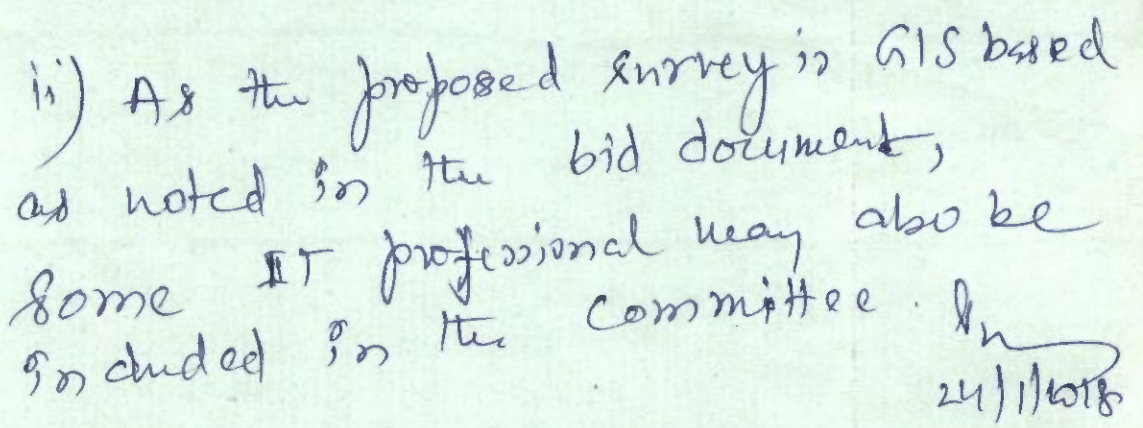 ii) As the proposed survey is GIS based
as noted in the bid document,
some IT professional may also be
included in the committee.
24/1/2018